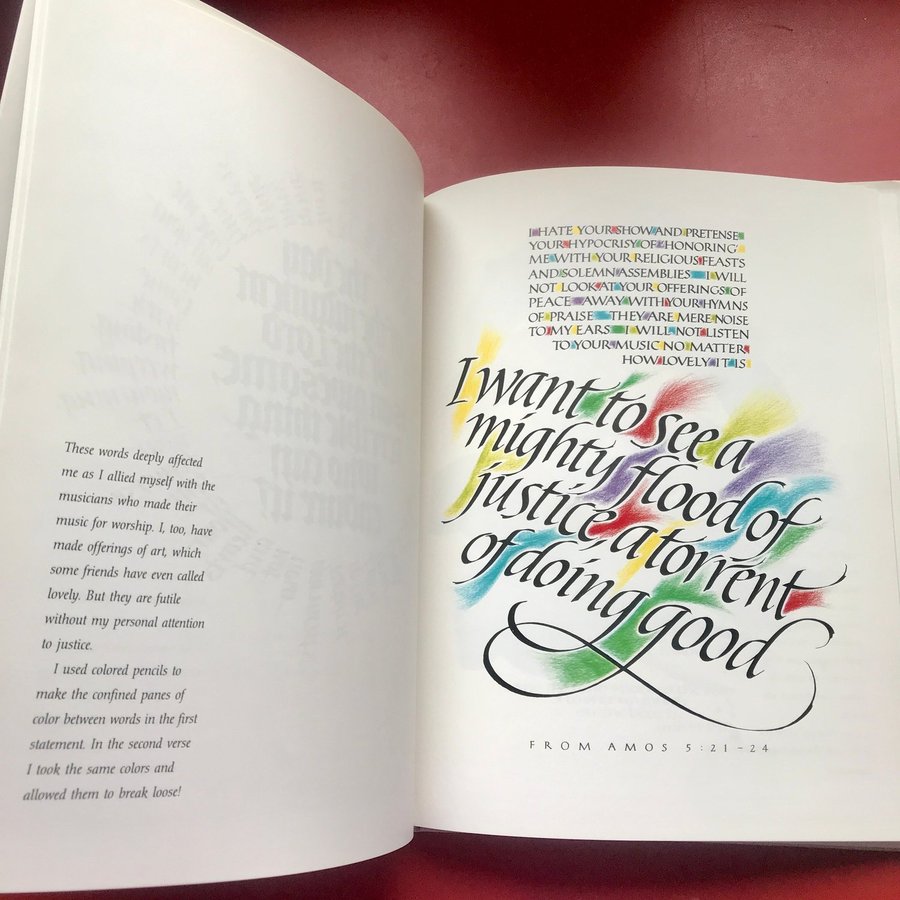 These words deeply affected
me as I allied myself with the
musicians who made their
music for worship. I, too, have
made offerings of art, which
some friends have even called
lovely. But they are futile
without my personal attention
to justice.
I used colored pencils to
make the confined panes of
color between words in the first
statement. In the second verse
I took the same colors and
allowed them to break loose!
I HATE YOUR SHOW AND PRETENSE
YOUR HYPOCRISY OF HONORING
ME WITH YOUR RELIGIOUS FEASTS
AND SOLEMN ASSEMBLIES I WILL
NOT LOOK AT YOUR OFFERINGS OF
PEACE AWAY WITH YOUR HYMNS
OF PRAISE THEY ARE MERE NOISE
TO MY EARS I WILL NOT LISTEN
TO YOUR MUSIC NO MATTER
HOW LOVELY IT IS
I want to see a
mighty flood of
justice, a torrent
of doing good
FROM AMOS 5:21-24